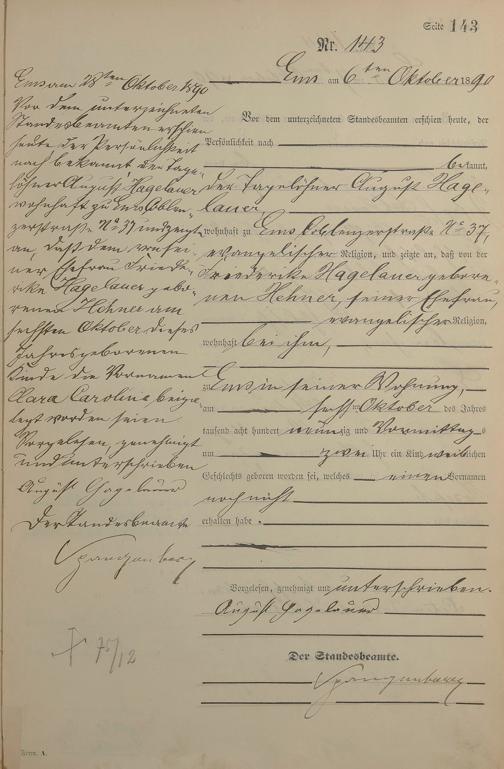 Seite 143
Nr. 143
Ems am 6ten Oktober 1890
Vor dem unterzeichneten Standesbeamten erschien heute, der
Persönlichkeit nach
bekannt,
der Tagelöhner August Hage-
lauer,
wohnhaft zu Ems Coblenzerstraße No 37,
evangelischer Religion, und zeigte an, daß von der
Friederike Hagelauer gebore-
nen Hehner, seiner Ehefrau,
evangelischer Religion,
wohnhaft bei ihm,
zu Ems in seiner Wohnung,
am sechsten Oktober des Jahres
tausend acht hundert neunzig und Vormittags
um zwei Uhr ein Kind weiblichen
Geschlechts geboren worden sei, welches einen Vornamen
noch nicht
erhalten habe.
Vorgelesen, genehmigt und unterschrieben.
August Hagelauer
Der Standesbeamte.
Spangenberg
Ems am 28ten Oktober 1890
Vor dem unterzeichneten
Standesbeamten erschien
heute der Persönlichkeit
nach bekannt der Tage-
löhner August Hagelauer
wohnhaft zu Ems Coblen-
zerstraße No 37 und zeigte
an, daß dem von sei-
ner Ehefrau Friede-
rike Hagelauer gebo-
renen Hehner am
sechsten Oktober dieses
Jahres geborenen
Kinde die Vornamen
Clara Carolina beige-
legt worden seien
Vorgelesen, genehmigt
und unterschrieben
August Hagelauer
Der Standesbeamte
Spangenberg
A.